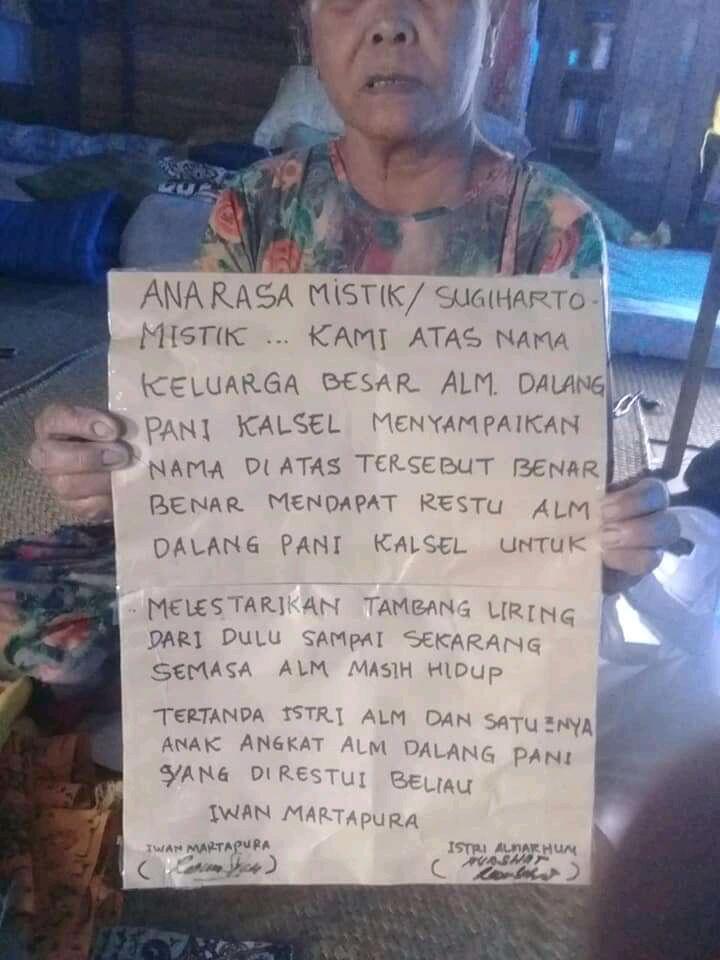 ANA RASA MISTIK/ SUGIHARTO
MISTIK ... KAMI ATAS NAMA
KELUARGA BESAR ALM. DALANG
PANI KALSEL MENYAMPAIKAN
NAMA DI ATAS TERSEBUT BENAR
BENAR MENDAPAT RESTU ALM
DALANG PANI KALSEL UNTUK
MELESTARIKAN TAMBANG LIRING
DARI DULU SAMPAI SEKARANG
SEMASA ALM MASIH HIDUP
TERTANDA ISTRI ALM DAN SATU=NYA
ANAK ANGKAT ALM DALANG PANI
YANG DIRESTUI BELIAU
IWAN MARTAPURA
IWAN MARTAPURA ISTRI ALMARHUM